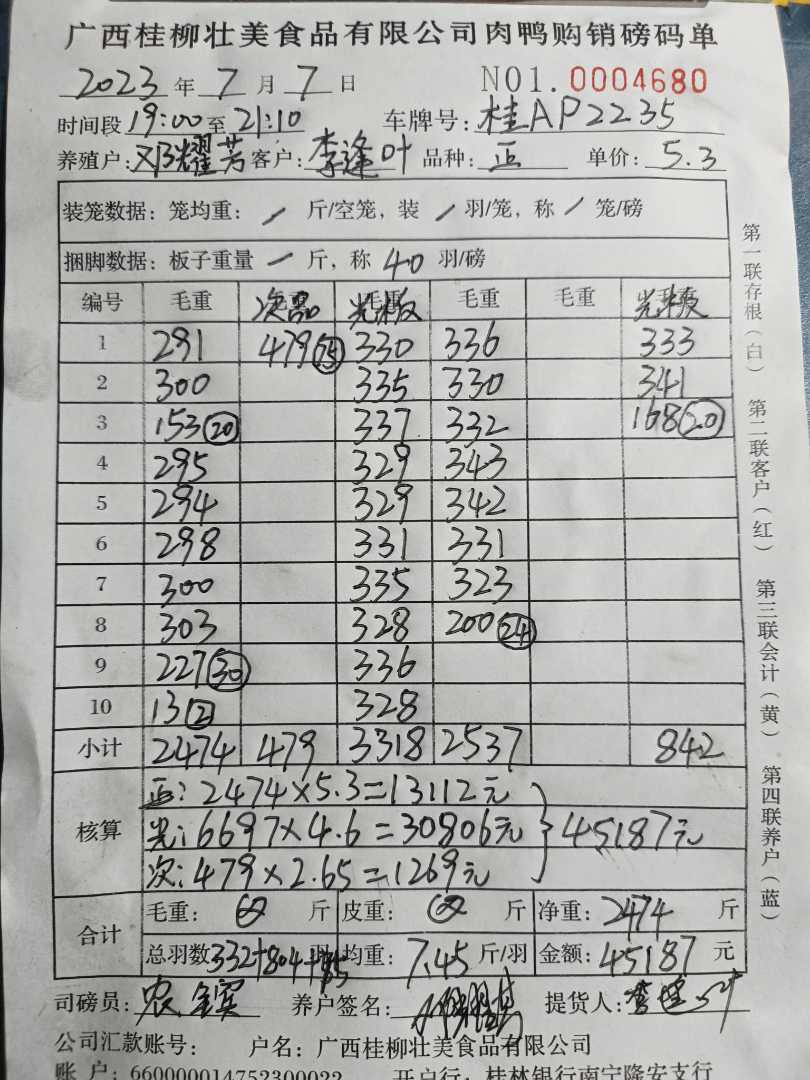 广西桂柳壮美食品有限公司肉鸭购销磅码单
2023 年 7 月 7 日 NO1. 0004680
时间段 19:00 至 21:10 车牌号: 桂AP2235
养殖户: 邓耀芳 客户: 李逢叶 品种: 正 单价: 5.3
装笼数据: 笼均重: / 斤/空笼, 装 / 羽/笼, 称 / 笼/磅
捆脚数据: 板子重量 一 斤, 称 40 羽/磅
编号 毛重 次品 光 毛重 毛重 光
1 291 479 330 336 333
2 300 335 330 341
3 153 (20) 337 332 168 (20)
4 295 329 343
5 294 329 342
6 298 331 331
7 300 335 323
8 303 328 200 (24)
9 227 (30) 336
10 13 (2) 328
小计 2474 479 3318 2537 842
核算
正: 2474×5.3=13112元
光: 6697×4.6=30806元 } 45187元
次: 479×2.65=1269元
合计
毛重: 斤 皮重: 斤 净重: 2474 斤
总羽数 332+804+85 羽 均重: 7.45 斤/羽 金额: 45187 元
司磅员: 农 养户签名: 提货人: 李逢叶
公司汇款账号: 户名: 广西桂柳壮美食品有限公司
账 户: 660000014752300022 开户行: 桂林银行南宁隆安支行
第一联存根(白) 第二联客户(红) 第三联会计(黄) 第四联养户(蓝)